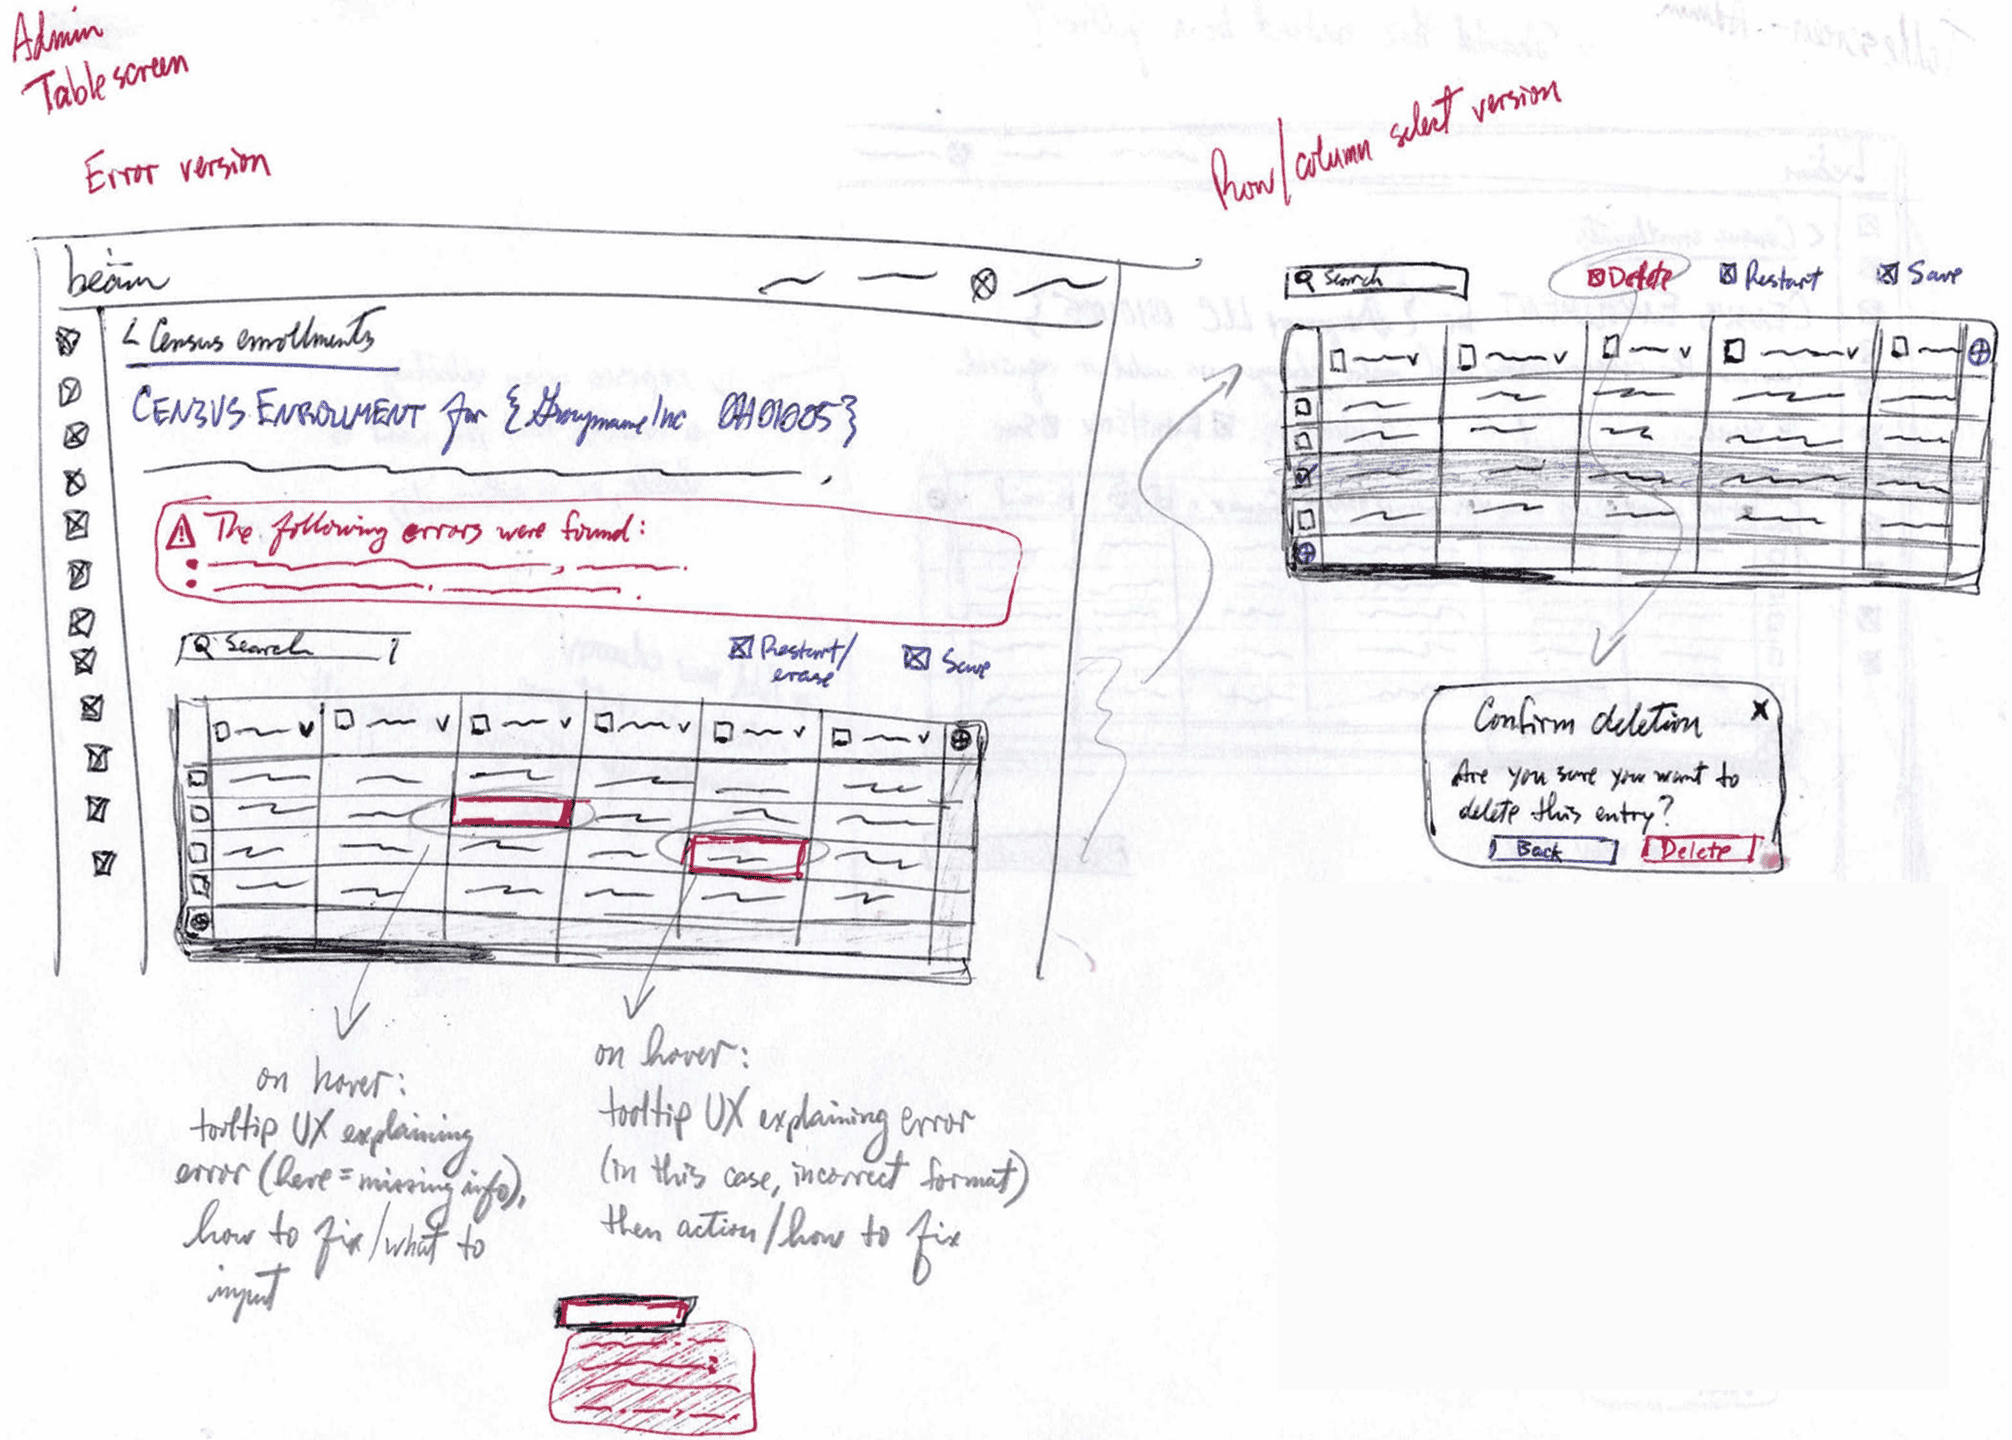 Admin
Table screen
Error version
beam
< Census enrollments
CENSUS ENROLLMENT for {Groupname Inc 01101005}
The following errors were found:
Search
Restart/
erase
Save
on hover:
tooltip UX explaining
error (here = missing info),
how to fix/what to
input
on hover:
tooltip UX explaining error
(in this case, incorrect format)
then action/how to fix
Row/column select version
Search
Delete
Restart
Save
Confirm deletion
X
Are you sure you want to
delete this entry?
Back
Delete